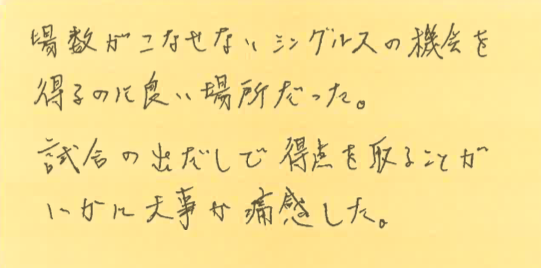 場数がこなせないシングルスの機会を
得るのに良い場所だった。
試合の出だしで得点を取ることが
いかに大事か痛感した。